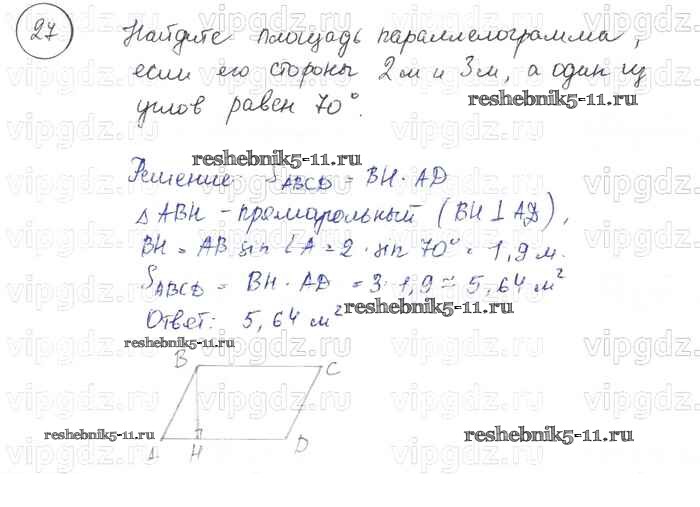 27
Найдите площадь параллелограмма,
если его стороны 2 м и 3 м, а один из
углов равен 70°.
reshebnik5-11.ru
reshebnik5-11.ru
Решение: S ABCD = BH · AD
Δ ABH - прямоугольный (BH ⊥ AD),
BH = AB sin ∠A = 2 · sin 70° = 1,9 м.
S ABCD = BH · AD = 3 · 1,9 = 5,64 м²
reshebnik5-11.ru
Ответ: 5,64 м²
reshebnik5-11.ru
B C
reshebnik5-11.ru
reshebnik5-11.ru
A H D
vipgdz.ru